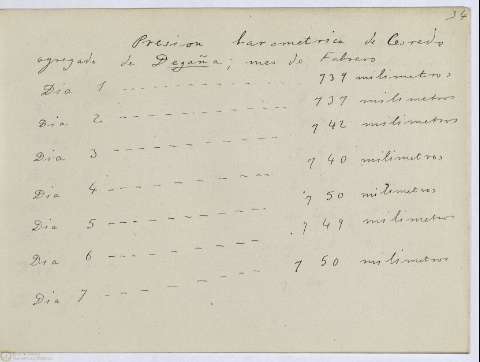 34
Presion barometrica de Cerredo
agregado de Degaña; mes de Febrero
Dia 1 739 milimetros
Dia 2 737 milimetros
Dia 3 742 milimetros
Dia 4 740 milimetros
Dia 5 750 milimetros
Dia 6 749 milimetros
Dia 7 750 milimetros